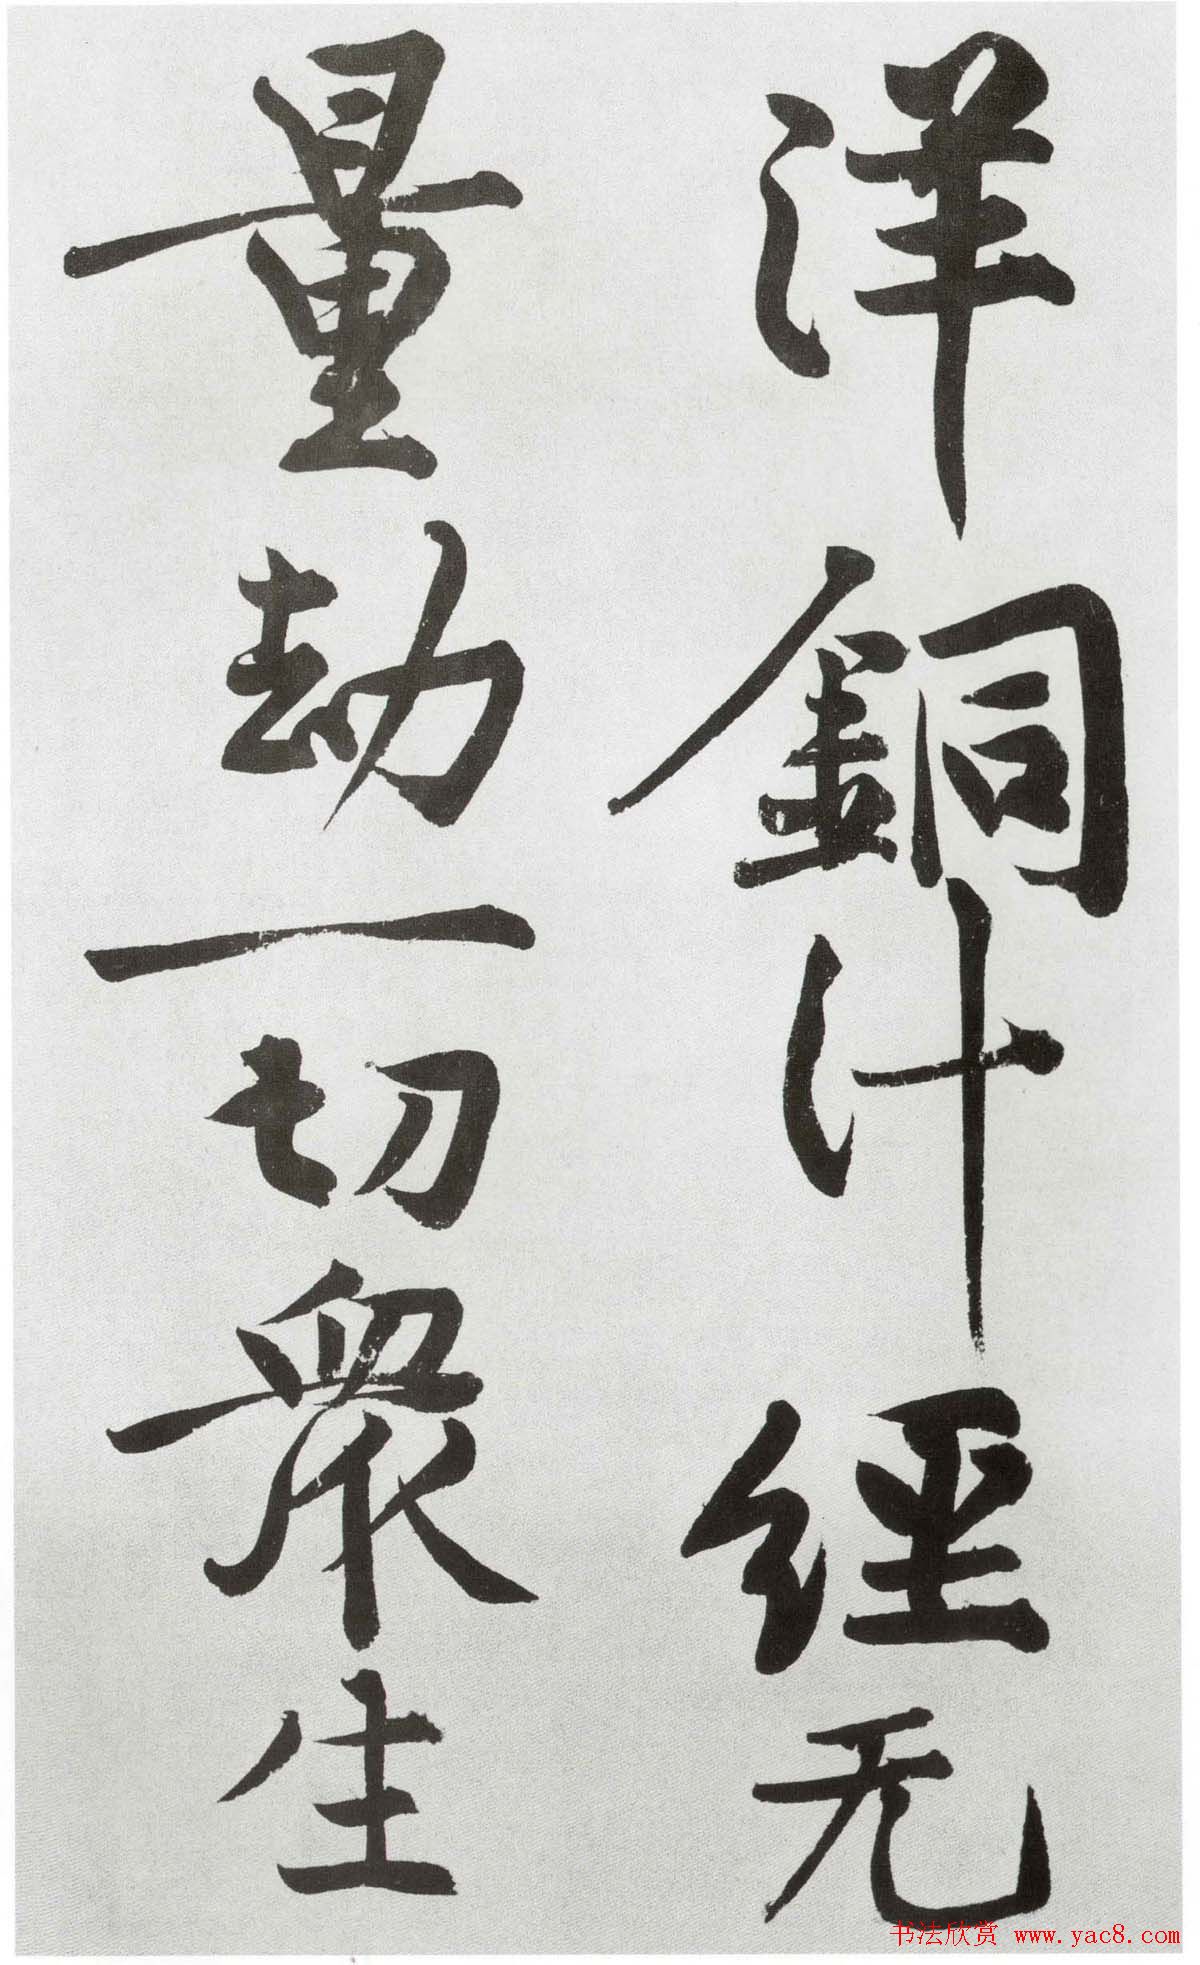 洋銅汁經无
量劫一切眾生
书法欣赏 www.yac8.com